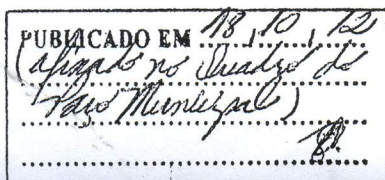 PUBLICADO EM 18,10,12
(afixado no quadro do
Paço Municipal)